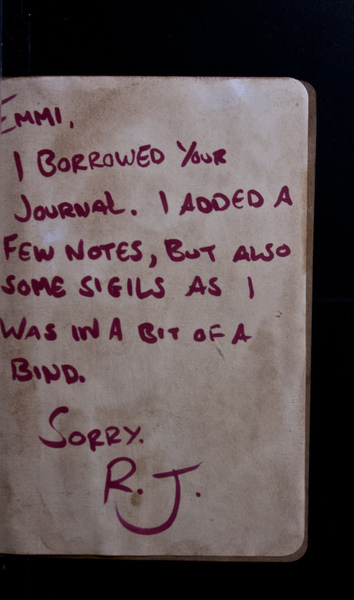 EMMI,
I BORROWED YOUR
JOURNAL. I ADDED A
FEW NOTES, BUT ALSO
SOME SIGILS AS I
WAS IN A BIT OF A
BIND.
SORRY.
R.J.